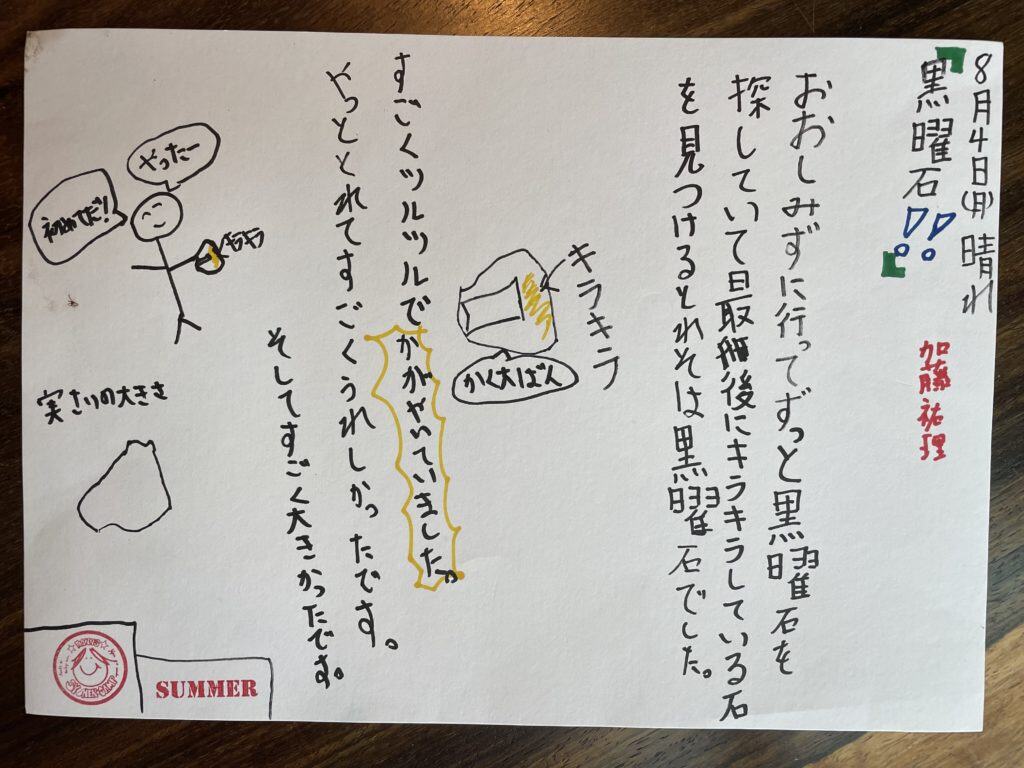 8月4日(月) 晴れ
「黒曜石!!」
加藤祐理
おおしみずに行ってずっと黒曜石を
探していて最後にキラキラしている石
を見つけるとれそは黒曜石でした。
キラキラ
かく大ばん
すごくツルツルでかがやいていました。
やっととれてすごくうれしかったです。
そしてすごく大きかったです。
やったー
初めてだ!
キラキラ
実さいの大きさ
SUMMER